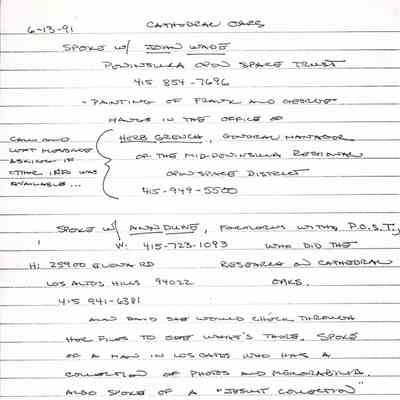 6-13-91 CATHEDRAL OAKS
SPOKE W/ JOAN WADE
PENINSULA OPEN SPACE TRUST
415 854-7696
- PAINTING OF FRANK AND GEORGE
HANGS IN THE OFFICE OF
HERB GRENCH, GENERAL MANAGER
OF THE MIDPENINSULA REGIONAL
OPEN SPACE DISTRICT
415-949-5500
CALLED AND
LEFT MESSAGE
ASKING IF
OTHER INFO WAS
AVAILABLE...
SPOKE W/ ANN DUWE, FORMERLY WITH P.O.S.T.,
W: 415-723-1093 WHO DID THE
H: 25900 ELENA RD RESEARCH ON CATHEDRAL
LOS ALTOS HILLS 94022 OAKS.
415 941-6381
ANN SAID SHE WOULD CHECK THROUGH
HER FILES TO SEE WHAT'S THERE. SPOKE
OF A MAN IN LOS GATOS WHO HAS A
COLLECTION OF PHOTOS AND MEMORABILIA.
ALSO SPOKE OF A "JESUIT COLLECTION"